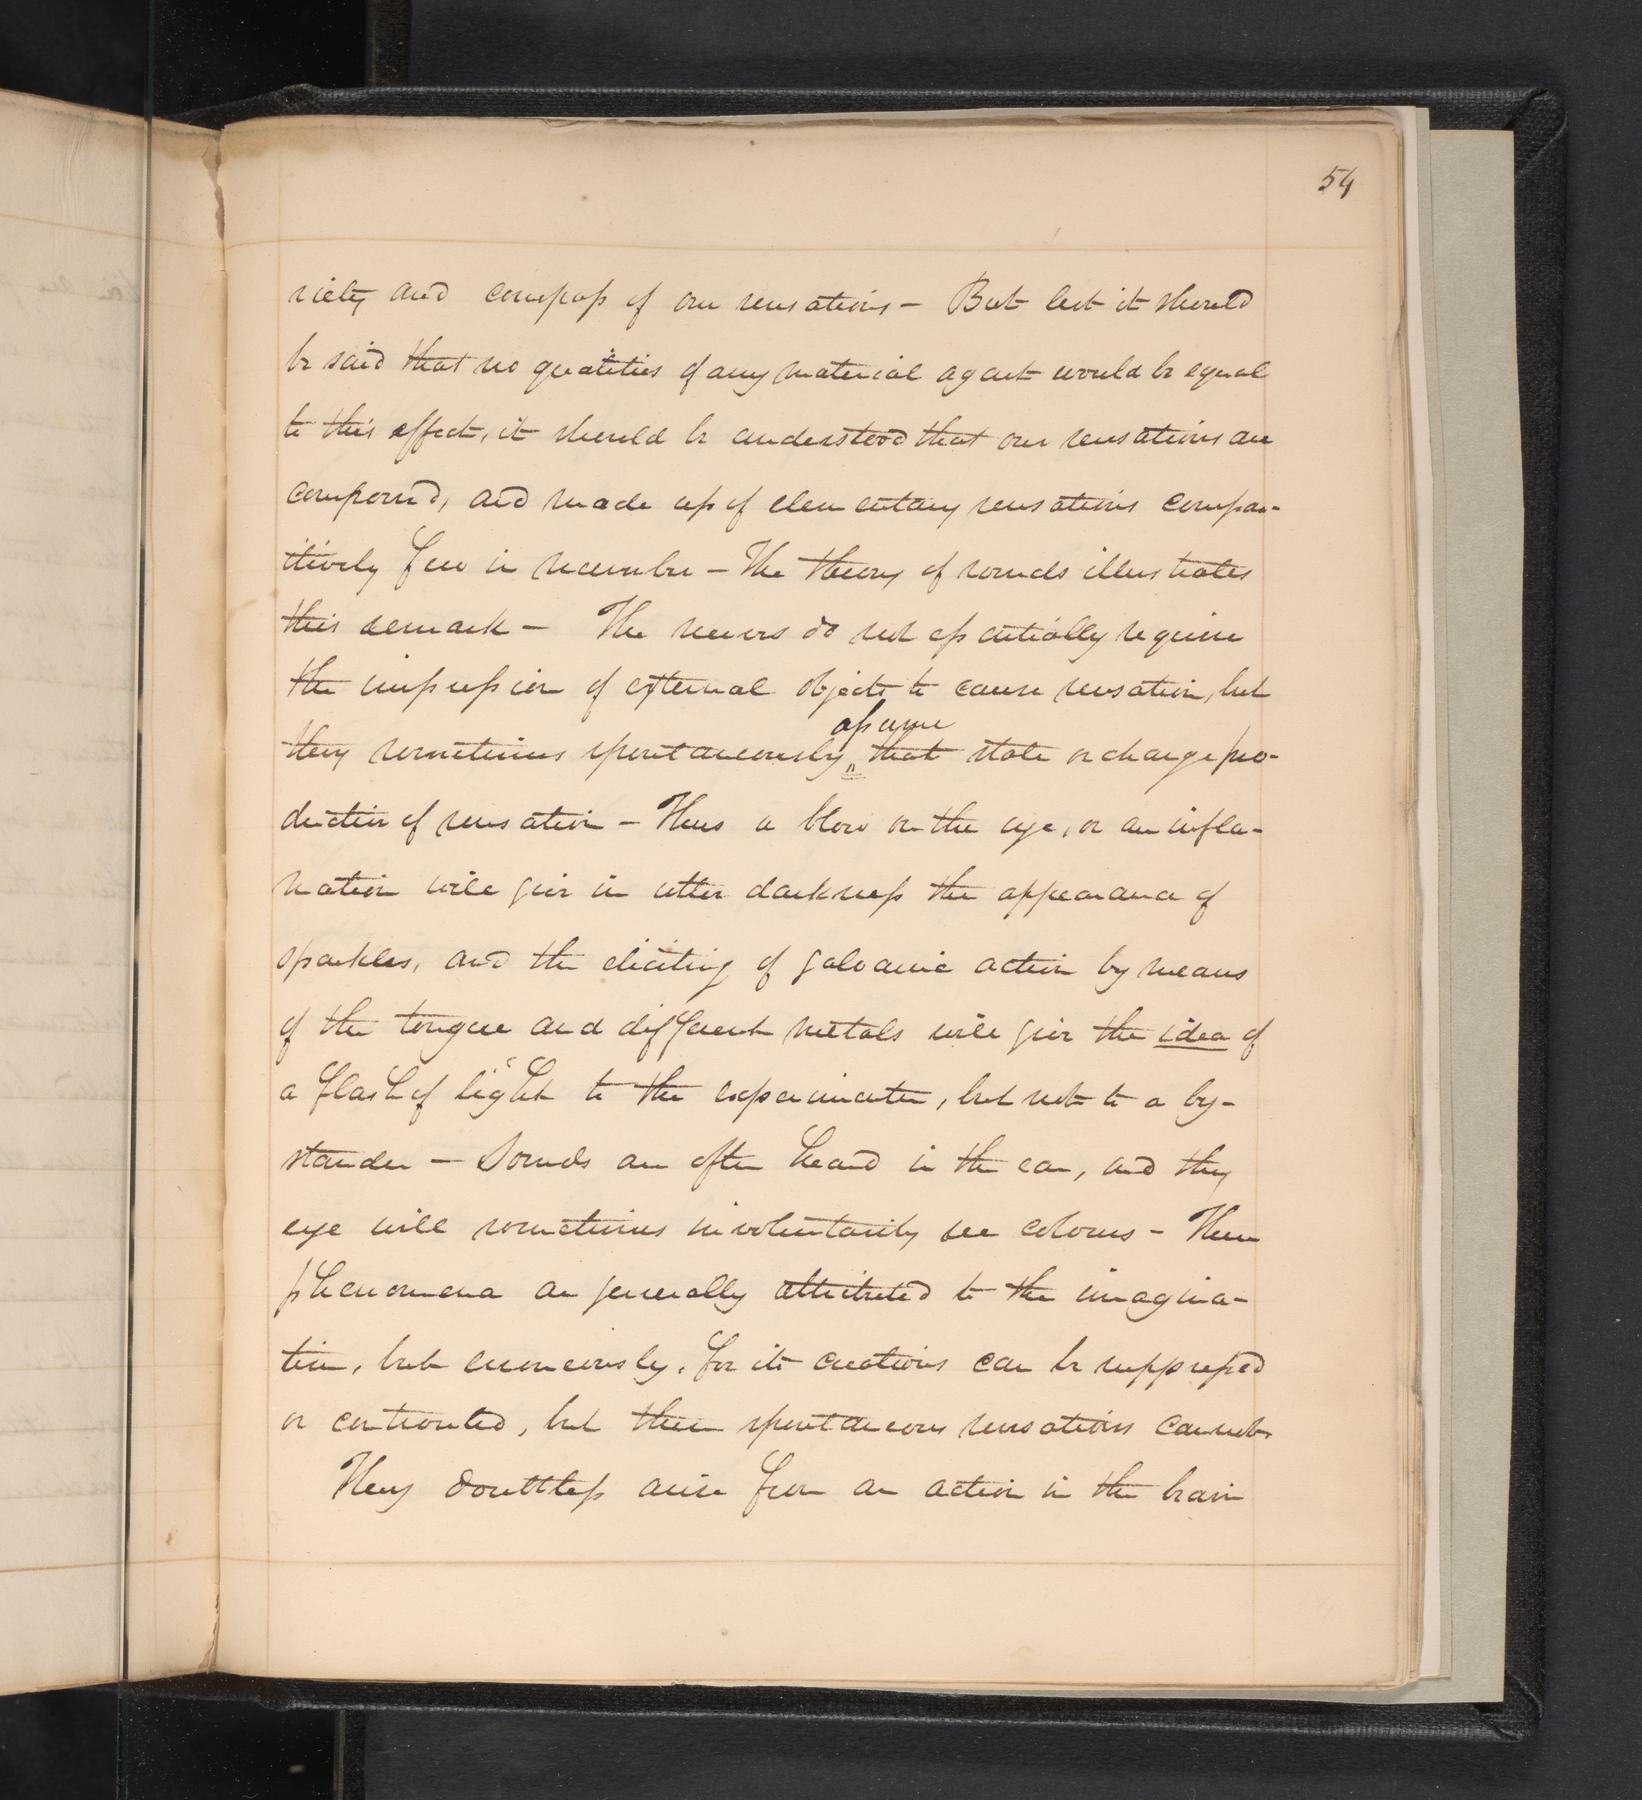 54
riety and compass of our sensations – But lest it should
be said that no qualities of any material agent would be equal
to this effect, it should be understood that our sensations are
compound, and made up of elementary sensations compar-
itively few in number – The theory of sounds illustrates
this remark – The nerves do not essentially require
the impression of external objects to cause sensation, but
assume
they sometimes spontaneously ^ that state or change pro-
duction of sensation – Thus a blow on the eye, or an infla-
mation will give in utter darkness the appearance of
sparkles, and the eliciting of galvanic action by means
of the tongue and different metals will give the idea of
a flash of light to the experimenter, but not to a by-
stander – Sounds are often heard in the ear, and they
eye will sometimes involuntarily see colours – These
phenomena are generally attributed to the imagina-
tion, but erroneously, for its creations can be suppressed
or controuled, but these spontaneous sensations cannot
They doubtless arise from an action in the brain